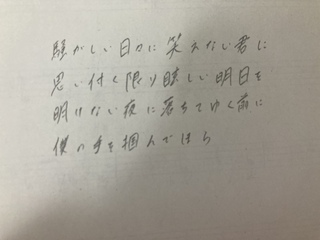 騒がしい日々に笑えない君に
思い付く限り眩しい明日を
明けない夜に落ちてゆく前に
僕の手を掴んでほら